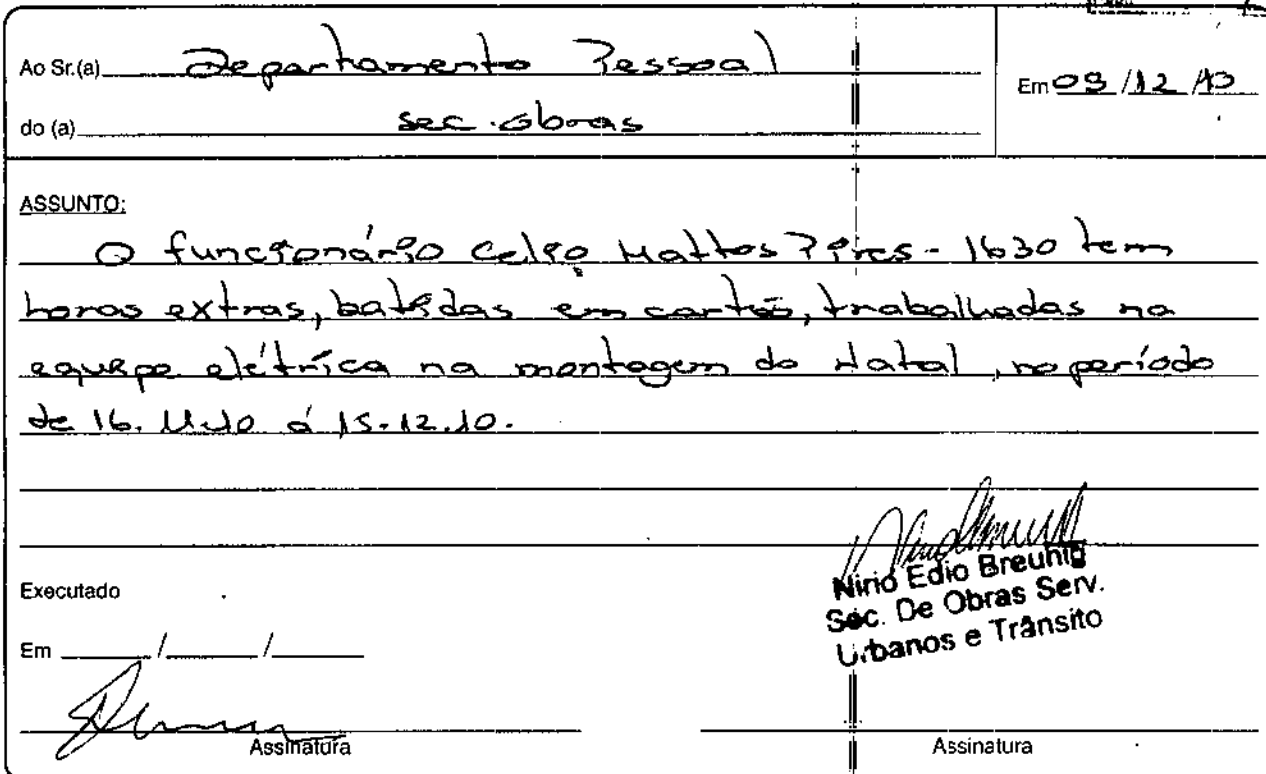 Ao Sr.(a) Departamento Pessoal
Em 09/12/10
do (a) sec. obras
ASSUNTO:
O funcionário Celso Mattos Pires - 1630 tem
horas extras, batidas em cartão, trabalhadas na
equipe elétrica na montagem do Natal, no período
de 16.11.10 á 15.12.10.
Nirio Edio Breunig
Sec. De Obras Serv.
Urbanos e Trânsito
Executado
Em ___/___/___
Assinatura
Assinatura